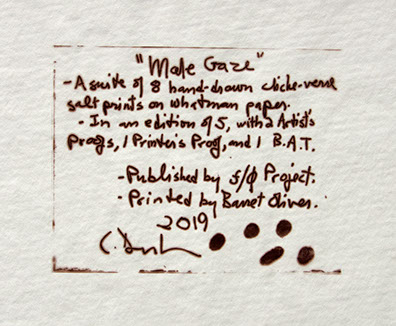 "Male Gaze"
- A suite of 8 hand-drawn cliché-verre
salt prints on whatman paper.
- In an edition of 5, with 2 Artist's
Proofs, 1 Printer's Proof, and 1 B.A.T.
- Published by f/Ø Project.
- Printed by Barret Oliver.
2019